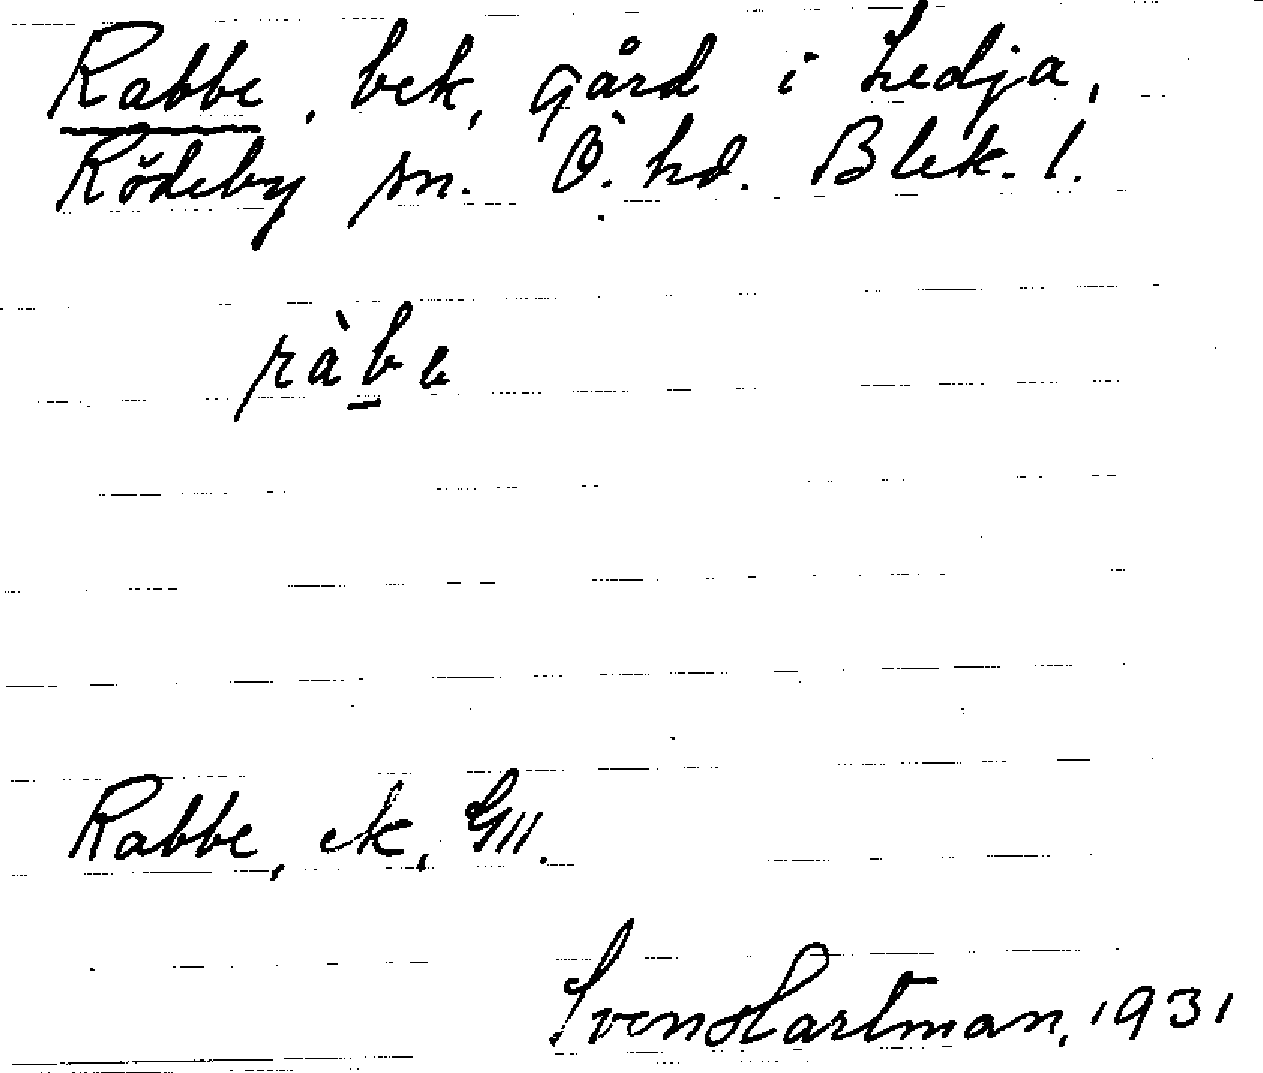 Rabbe, bek, gård i Ledja,
Rödeby sn. Ö. hd. Blek. l.
ràbe
Rabbe, ek, GII.
Sven Hartman, 1931